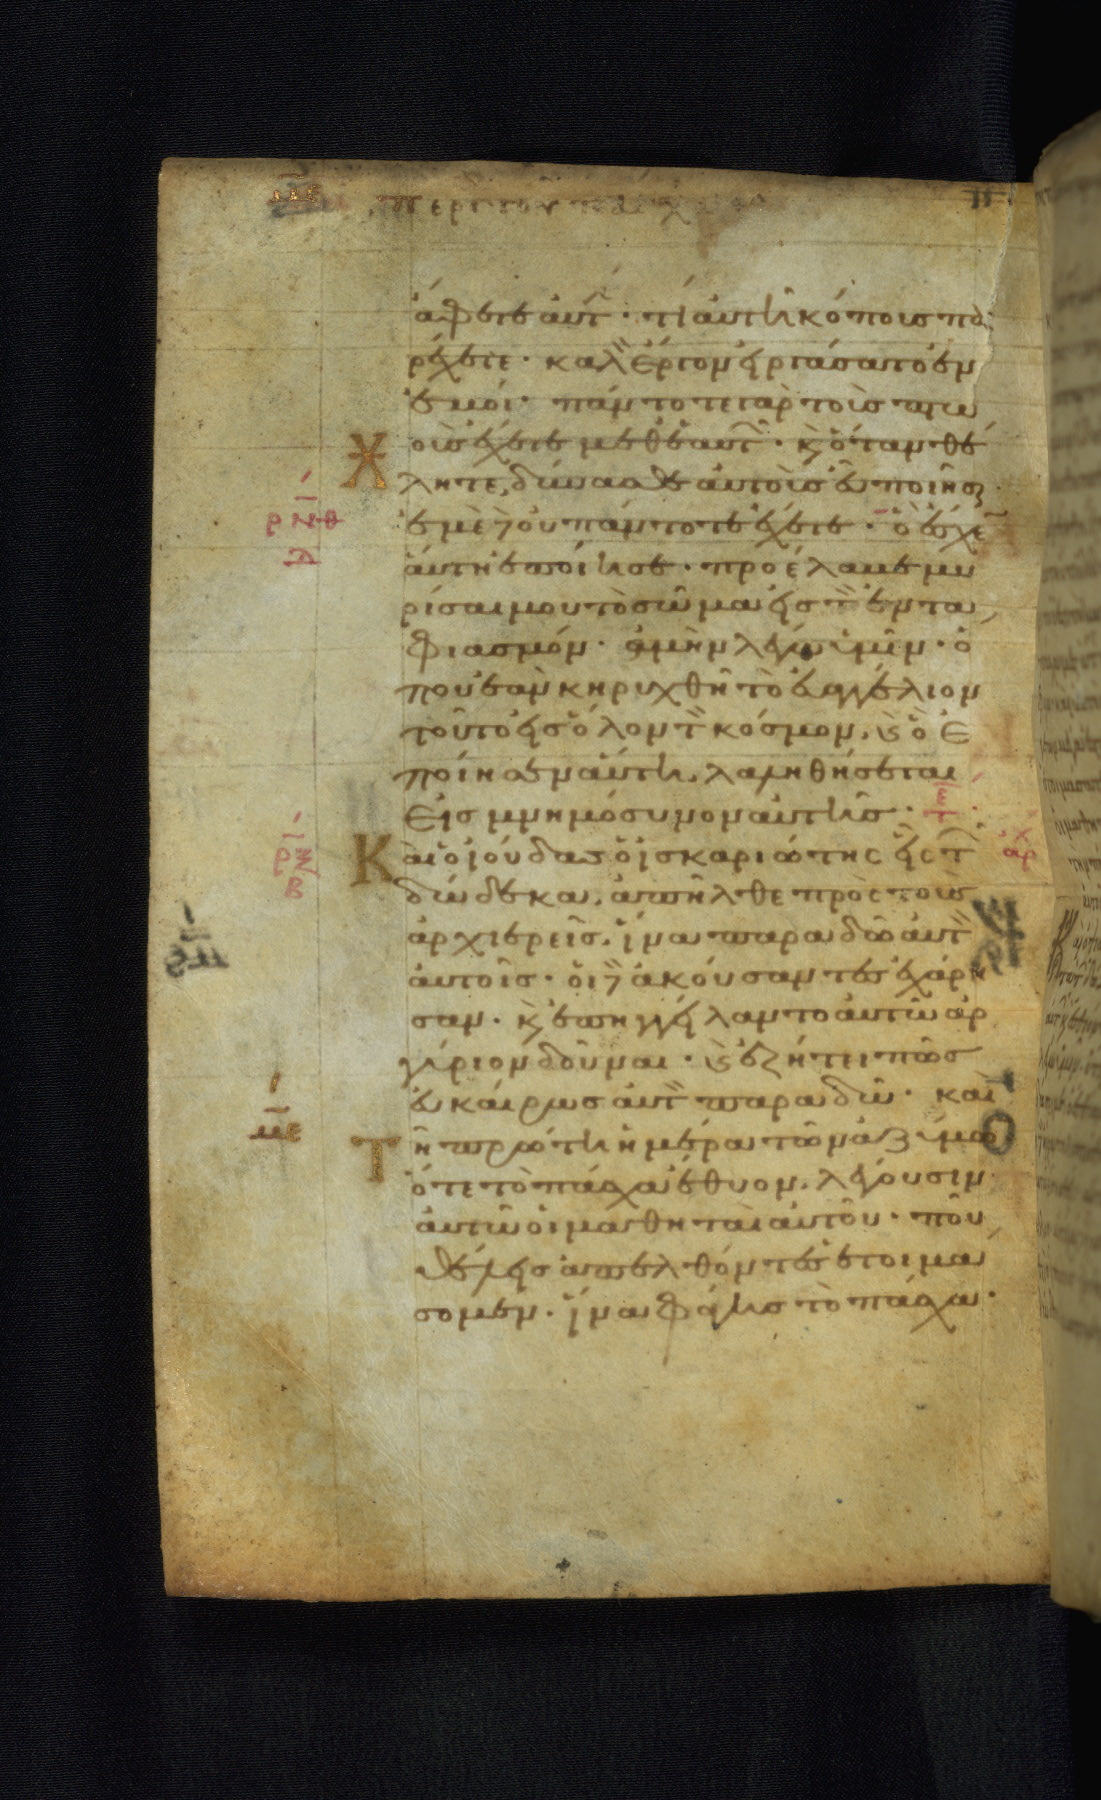 με περι του πασχα
ἄφετε αὐτ̅ · τί αὐτῆ κόπους πα
ρέχετε · καλ̅ ἔργον ἠργάσατο ἐν
ἐμοί · πάντοτε γὰρ τοὺς πτω
χοὺς ἔχετε μεθ ἑαυτ̅ · κ ὅταν θέ
λητε, δύνασθε αὐτοὺς εὖ ποιῆσ
ρνθ
δ
ἐμὲ δὲ οὐ πάντοτε ἔχετε · ὃ ἔσχεν
αὕτη ἐποίησε · προέλαβε μυ
ρίσαι μου τὸ σῶμα εἰς τ̅ ἐντα
φιασμόν · ἀμὴν λέγω ὑμῖν · ὅ
που ἐὰν κηρυχθῆ τὸ εὐαγγέλιον
τοῦτο εἰς ὅλον τ̅ κόσμον, κ ὃ ἐ
ποίησεν αὕτη, λαληθήσεται
εἰς μνημόσυνον αὐτῆς · τε
ρξ
β
Καὶ ὁ ἰούδας ὁ ἰσκαριώτης εἷς τ̅ αρχ
δώδεκα, ἀπῆλθε πρὸς τοὺς
ἀρχιερεῖς, ἵνα παραδῶ αὐτ̅
αὐτοῖς · οἱ δὲ ἀκούσαντες ἐχάρη
σαν · κ ἐπηγγείλαντο αὐτῶ ἀρ
γύριον δοῦναι · κ ἐζήτει πῶς
εὐκαίρως αὐτ̅ παραδῶ · καὶ
με
Τῆ πρώτη ἡμέρα τῶν ἀζύμων
ὅτε τὸ πάσχα ἔθυον, λέγουσιν
αὐτῶ οἱ μαθηταὶ αὐτοῦ · ποῦ
θέλεις ἀπελθόντες ἑτοιμά
σομεν · ἵνα φάγης τὸ πάσχα ·